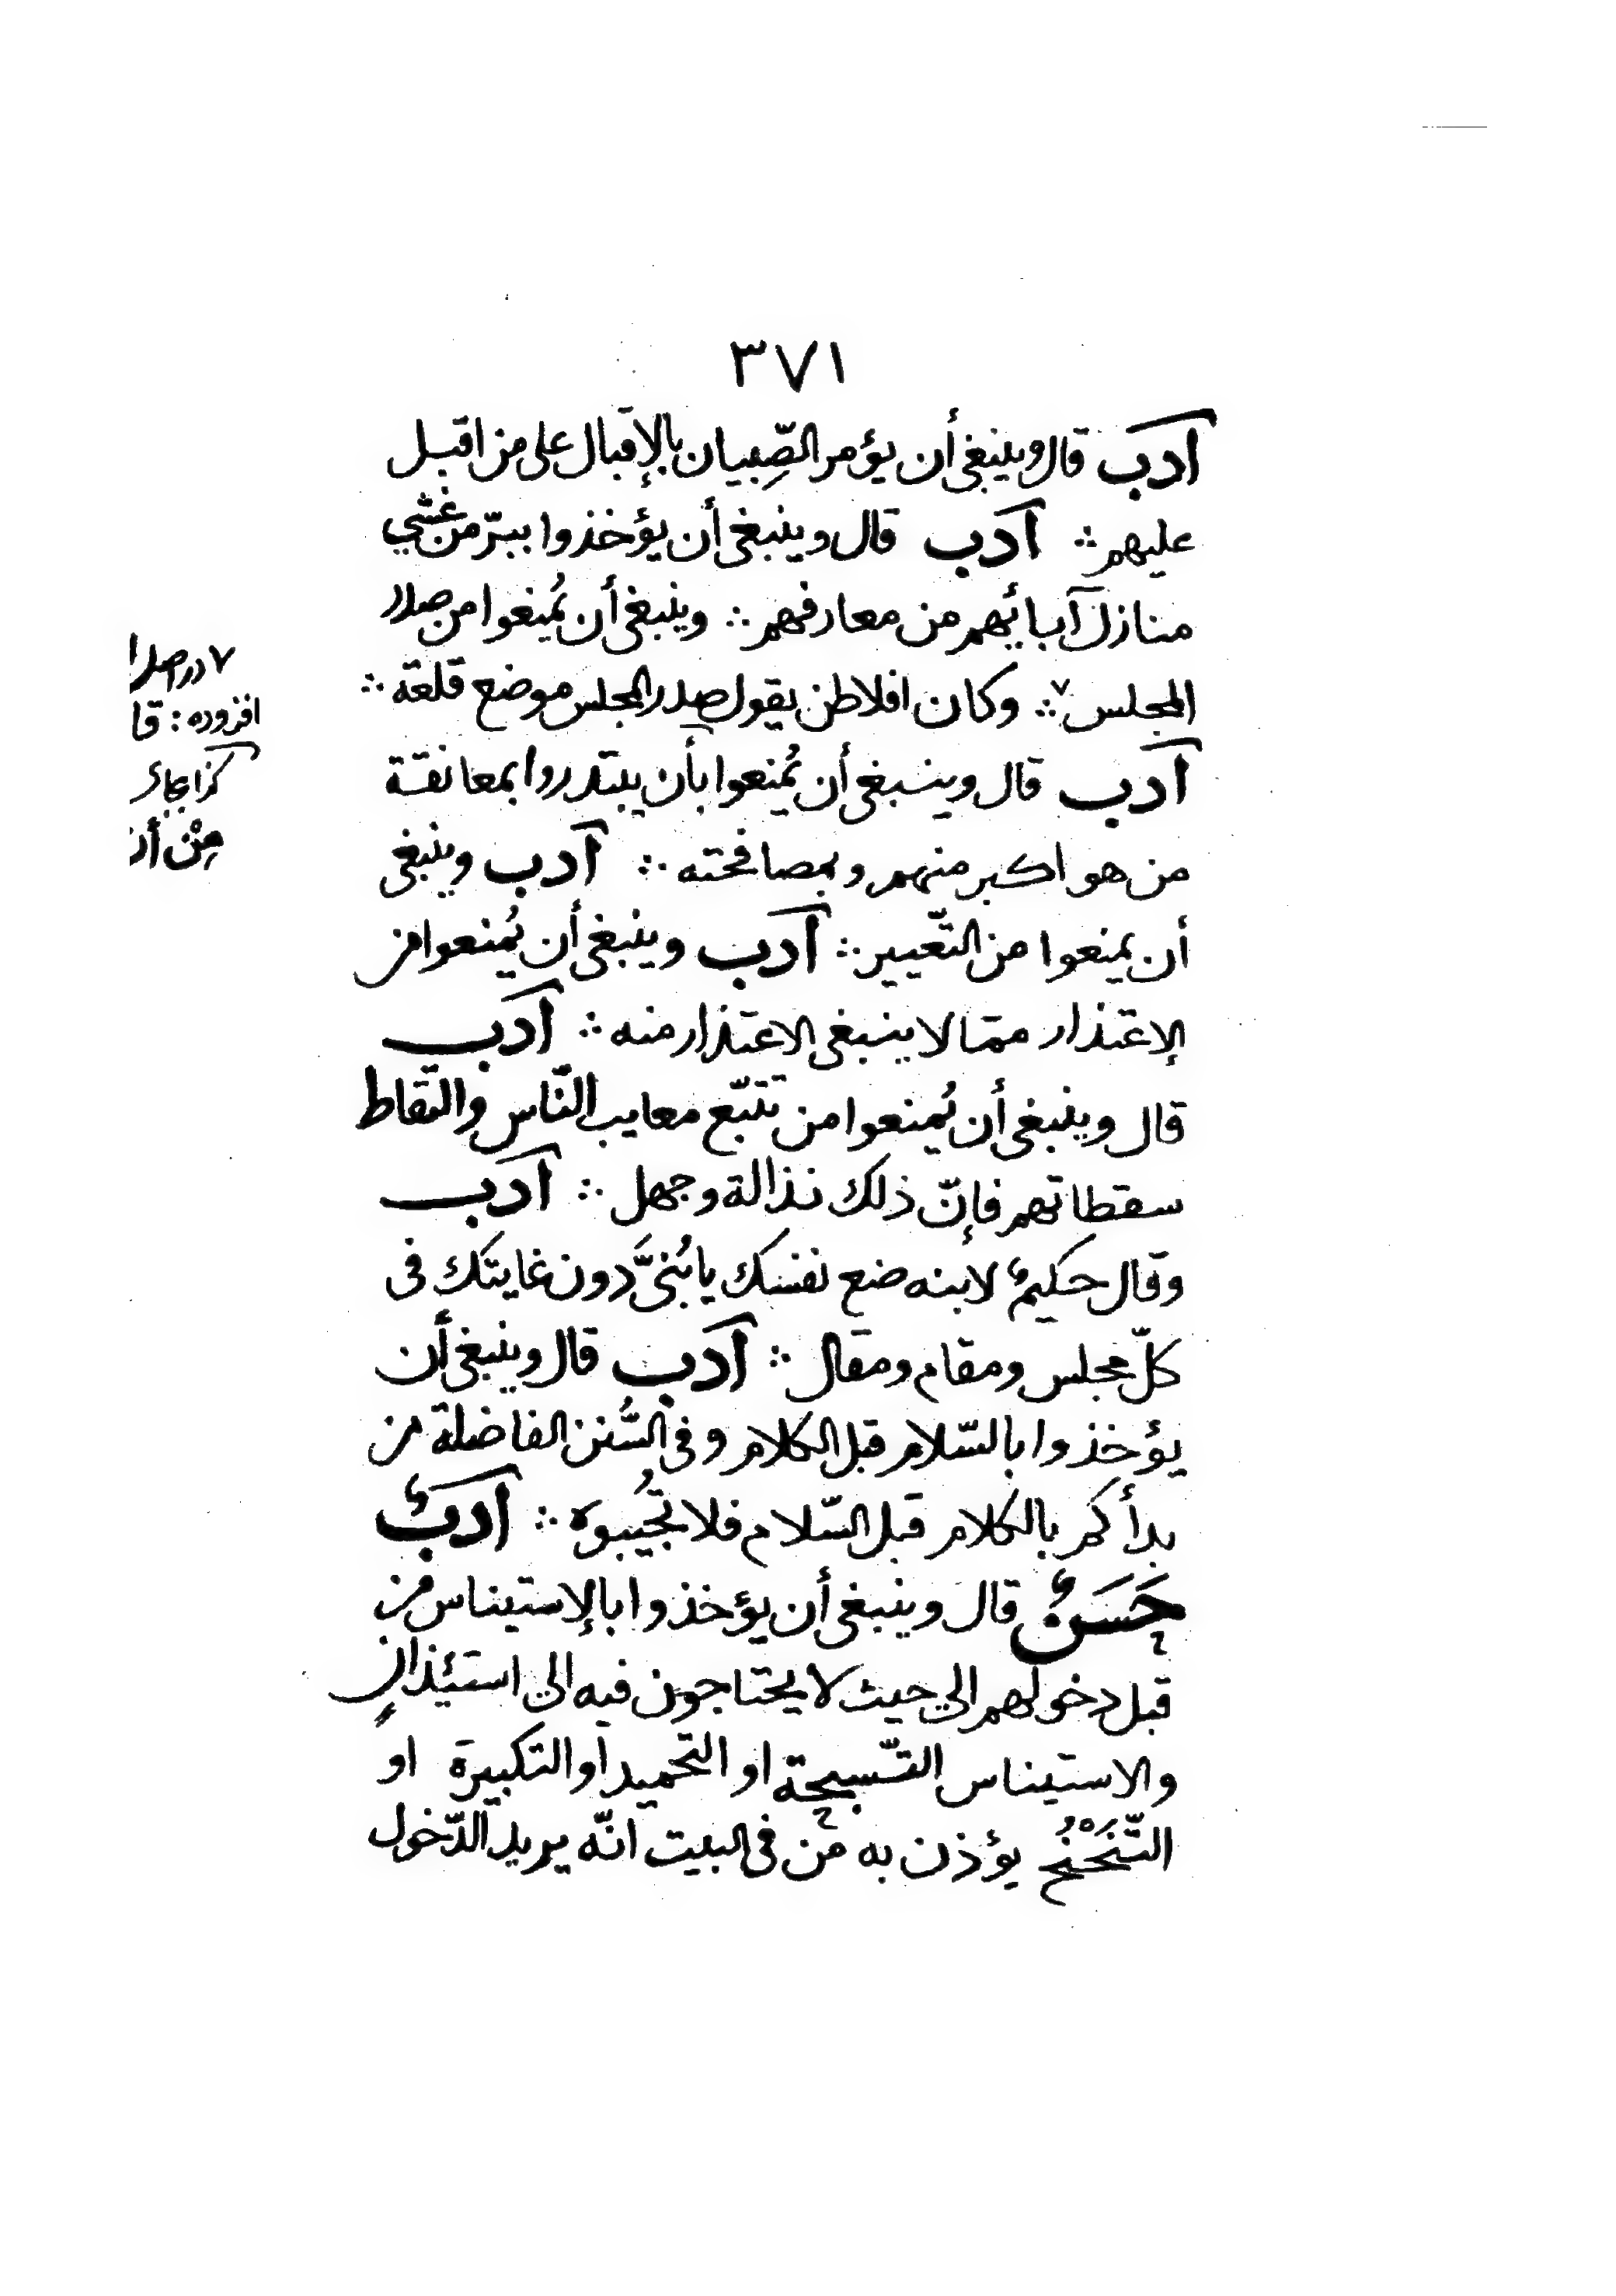 ٣٧١
أدب قال وينبغى أن يؤمر الصّبيان بالإقبال على من اقبل
عليهم ∴ أدب قال وينبغى أن يؤخذوا ببرّ من غشي
منازل آبائهم من معارفهم ∴ وينبغى أن يُمنعوا من صدر
المجلس ∴٧ وكان افلاطن يقول صدر المجلس موضع قلعة ∴
أدب قال وينبغى أن يُمنعوا بأن يبتدروا بمعانقة
من هو اكبر منهم وبمصافحته ∴ أدب وينبغى
أن يمنعوا من التّعيير ∴ أدب وينبغى أن يُمنعوا من
الإعتذار ممّا لا ينبغى الاعتذار منه ∴ أدب
قال وينبغى أن يُمنعوا من تتبّع معايب النّاس والتقاط
سقطاتهم فإنّ ذلك نذالة وجهل ∴ أدب
وقال حكيمٌ لابنه ضع نفسك يا بُنىَّ دون غايتك فى
كلّ مجلس ومقام ومقال ∴ أدب قال وينبغى أن
يؤخذوا بالسّلام قبل الكلام وفى السُّنن الفاضلة من
بدأكم بالكلام قبل السّلام فلا تجُيبوه ∴ أدبٌ
حَسَنٌ قال وينبغى أن يؤخذوا بالإستيناس من
قبل دخولهم الى حيث لا يحتاجون فيه الى استيذانٍ
والاستيناس التّسبيحة او التحميد أو التكبيرة او
التّنَحْنُح يؤذن به مَن فى البيت انّه يريد الدّخول
٧ در اصل ا
افزوده: قا
كذا بجاى
مِنْ أن